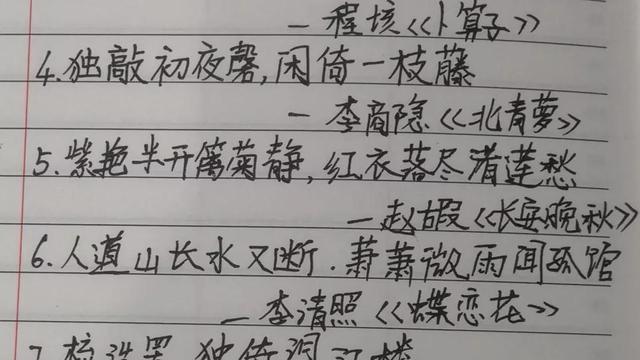 —程垓《卜算子》
4.独敲初夜磬,闲倚一枝藤
—李商隐《北青萝》
5.紫艳半开篱菊静,红衣落尽渚莲愁
—赵嘏《长安晚秋》
6.人道山长水又断.萧萧微雨闻孤馆
—李清照《蝶恋花》
7.梳洗罢 独倚望江楼